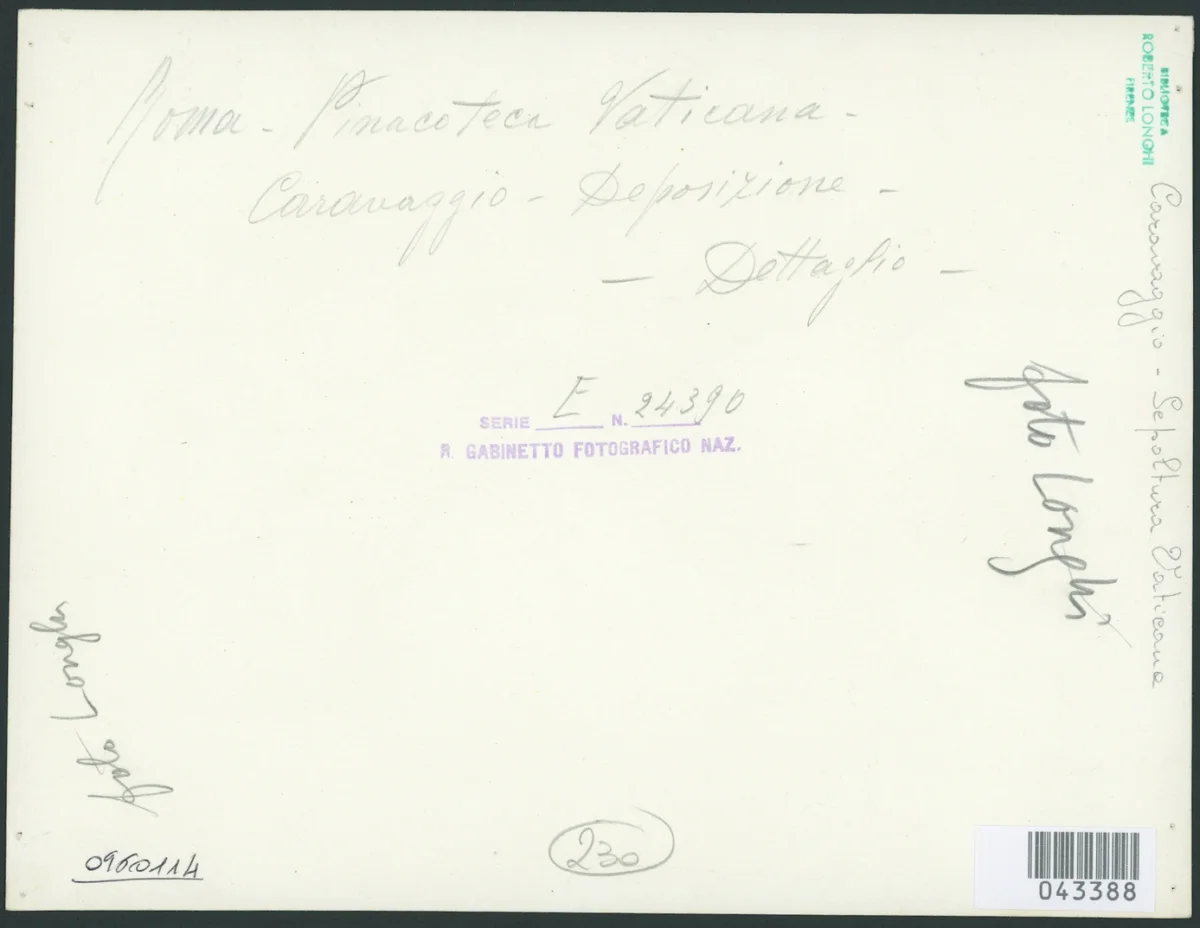 Roma - Pinacoteca Vaticana -
Caravaggio - Deposizione -
- Dettaglio -
SERIE E N. 24390
R. GABINETTO FOTOGRAFICO NAZ.
BIBLIOTECA
ROBERTO LONGHI
FIRENZE
Caravaggio - Sepoltura Vaticana
foto Longhi
foto Longhi
0960114
230
043388